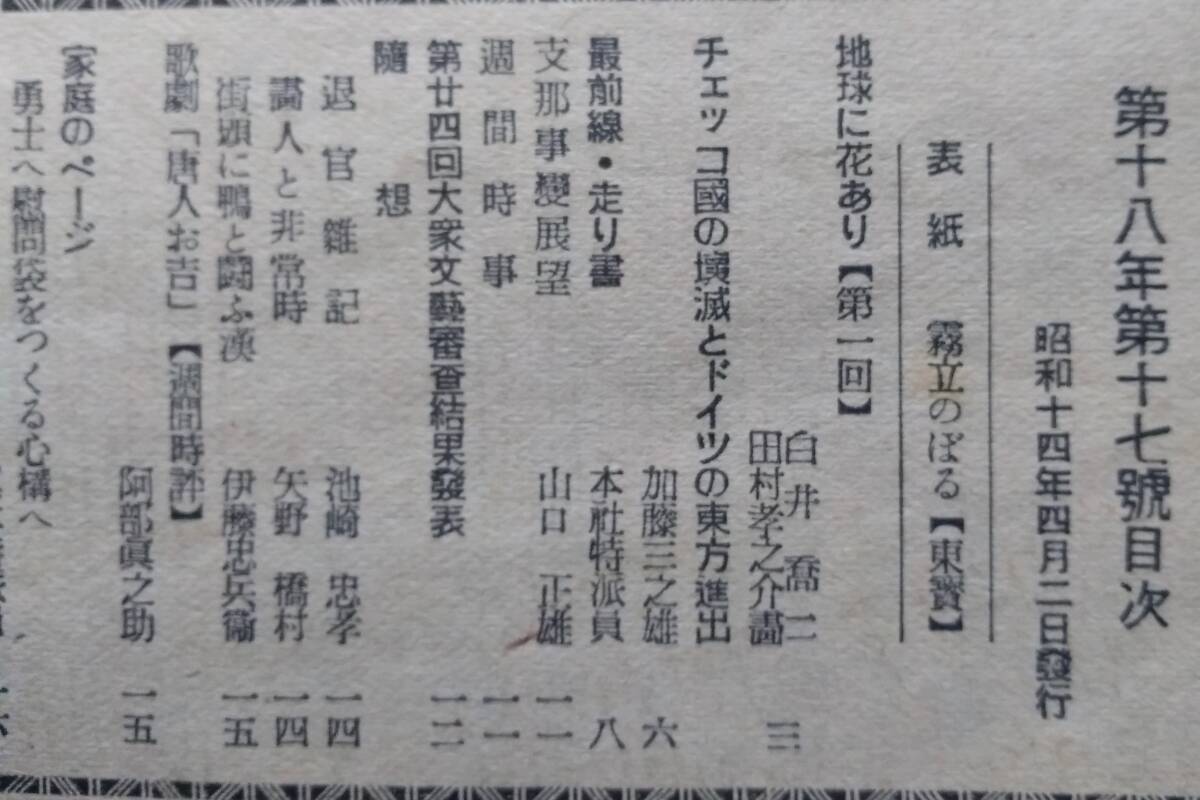 第十八年第十七號目次
昭和十四年四月二日發行
表紙 霧立のぼる【東寶】
地球に花あり【第一回】
白井喬二
田村孝之介畵
三
チェッコ國の壞滅とドイツの東方進出
加藤三之雄 六
最前線・走り書 本社特派員 八
支那事變展望 山口正雄 一一
週間時事 一一
第廿四回大衆文藝審査結果發表 一二
隨想
退官雜記 池崎忠孝 一四
畵人と非常時 矢野橋村 一四
街頭に鴨と鬪ふ漢 伊藤忠兵衞 一五
歌劇「唐人お吉」【週間時評】
阿部眞之助 一五
家庭のページ
勇士へ慰問袋をつくる心構へ